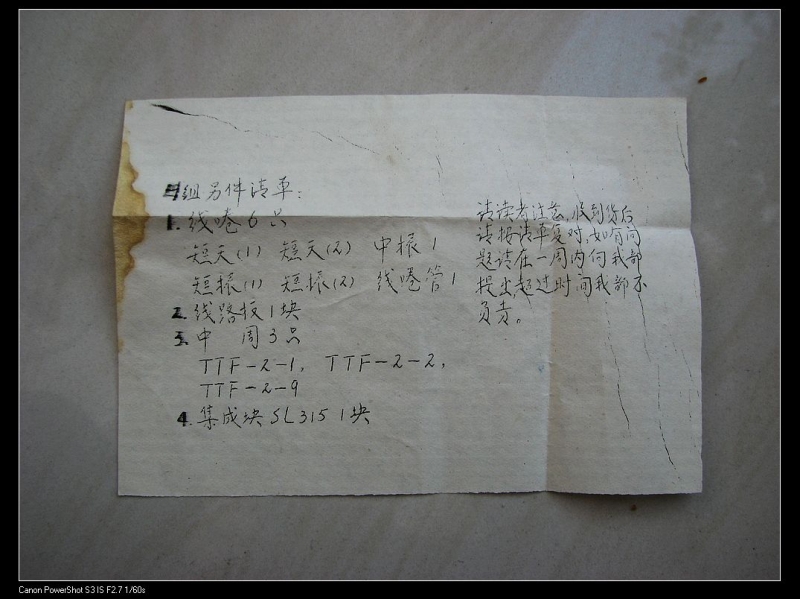 组另件清单:
1. 线喽6只
短天(1) 短天(2) 中振1
短振(1) 短振(2) 线喽管1
2. 线路板1块
3. 中 周3只
TTF-2-1, TTF-2-2,
TTF-2-9
4. 集成块SL315 1块
请读者注意,收到货后
请按清单复对,如有问
题请在一周内向我部
提出,超过时间我部不
负责。
Canon PowerShot S3 IS F2.7 1/60s